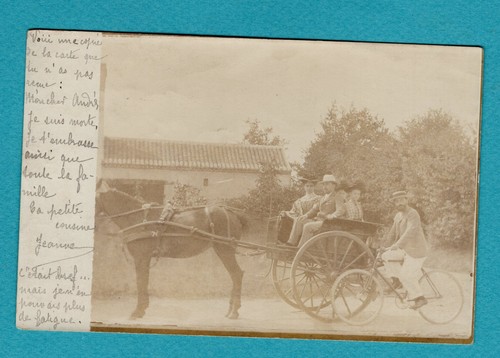 Voici une copie
de la carte que
tu n'as pas
reçue :
Mon cher André
je suis morte,
je t'embrasse
ainsi que
toute la fa-
mille
Ta petite
cousine
Jeanne
C'était bref ...
mais je n'en
pouvais plus
de fatigue.